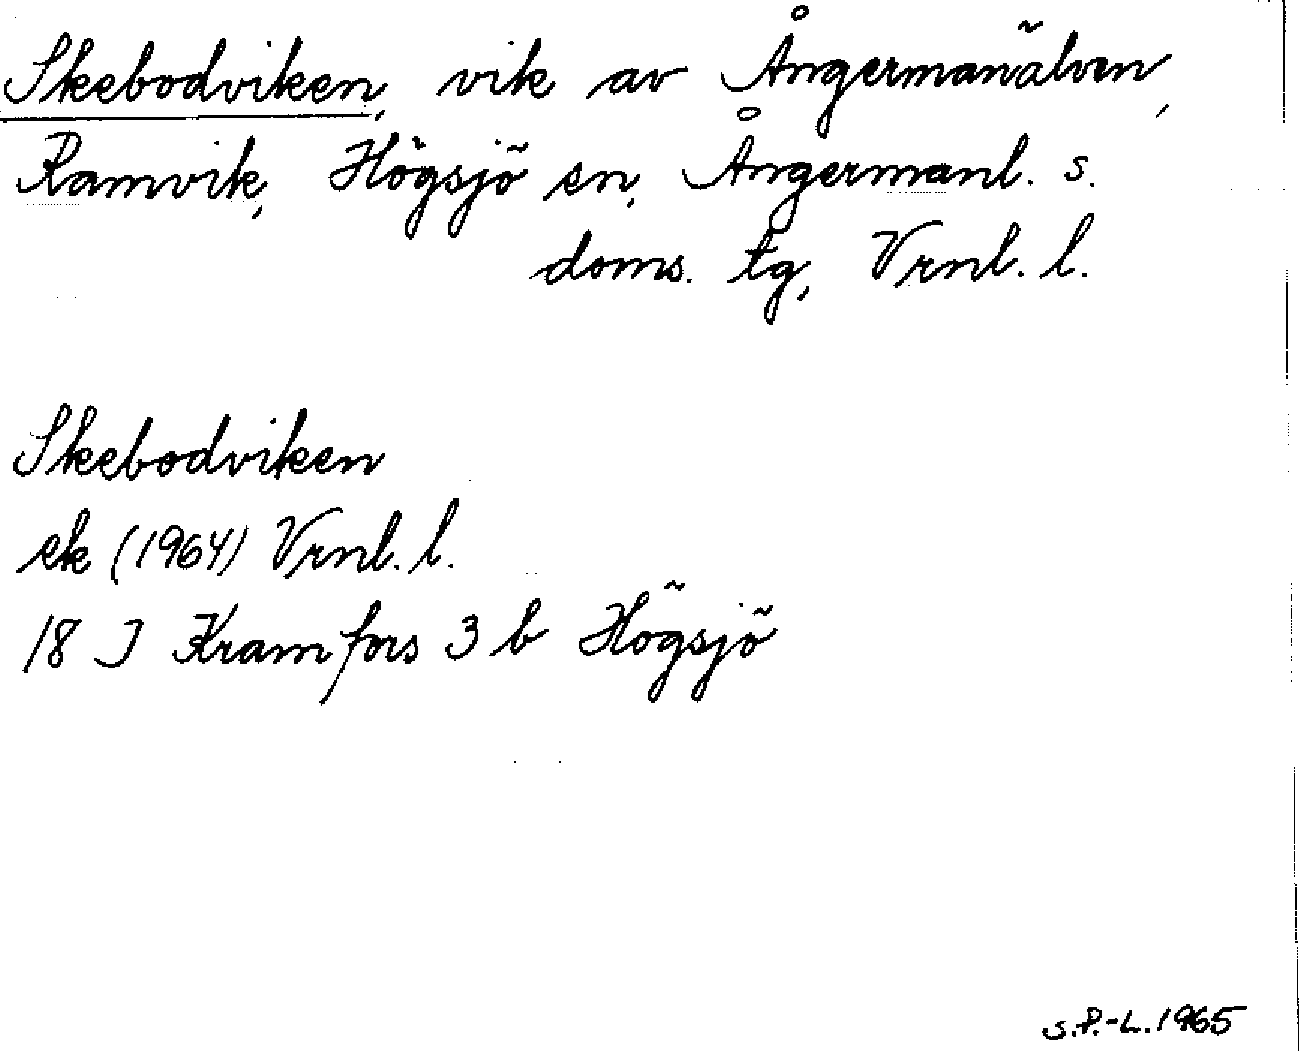 Skebodviken, vik av Ångermanälven,
Ramvik, Högsjö sn, Ångermanl. s.
doms. tg, Vrnl. l.
Skebodviken
ek (1964) Vrnl. l.
18 J Kramfors 3 b Högsjö
S.P.-L. 1965